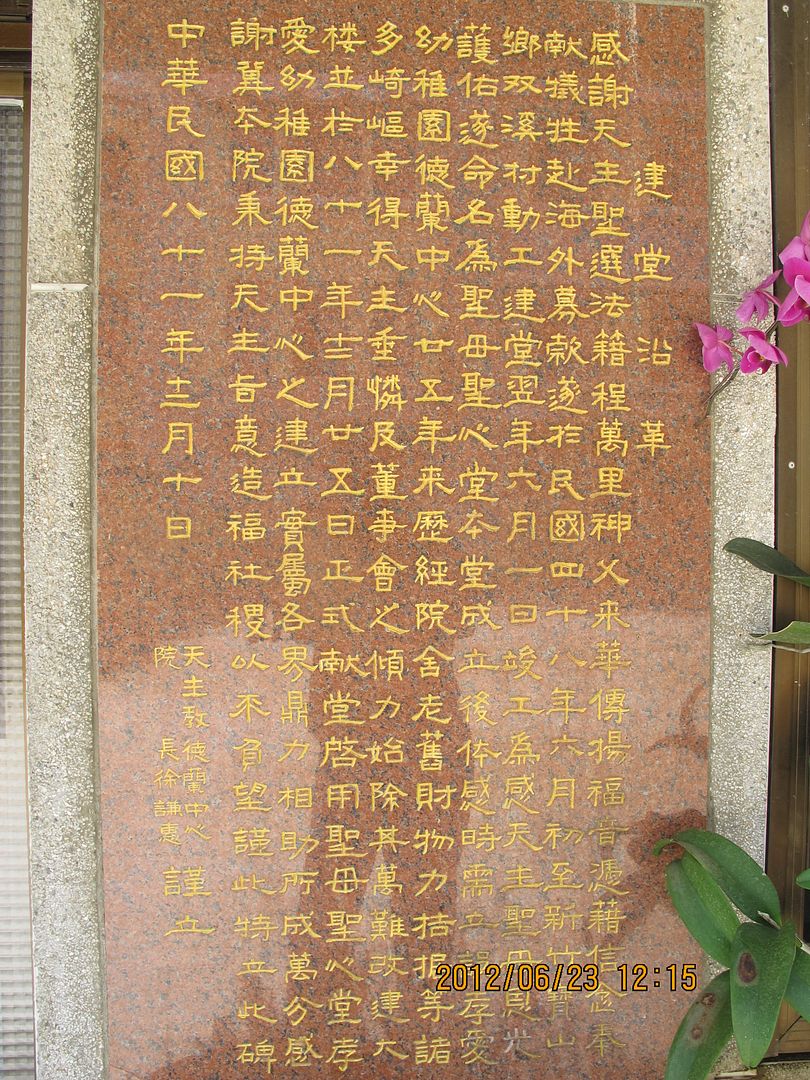 建堂沿革
感謝天主聖選法籍程萬里神父来華傳揚福音憑藉信念奉
献犧牲赴海外募款遂於民國四十八年六月初至新竹寶山
鄉双溪村動工建堂翌年六月一日竣工為感天主聖母恩光
護佑遂命名為聖母聖心堂本堂成立後体感時需立設存愛
幼稚園德蘭中心廿五年来歷經院舍老舊財物力拮据等諸
多崎嶇幸得天主垂憐及董事會之傾力始除其萬難改建大
楼並於八十一年十二月廿五日正式献堂啓用聖母聖心堂存
愛幼稚園德蘭中心之建立實屬各界鼎力相助所成萬分感
謝冀本院秉持天主旨意造福社稷以不負望謹此特立此碑
天主教德蘭中心
院長徐謙惠 謹立
中華民國八十一年十二月十日
2012/06/23 12:15